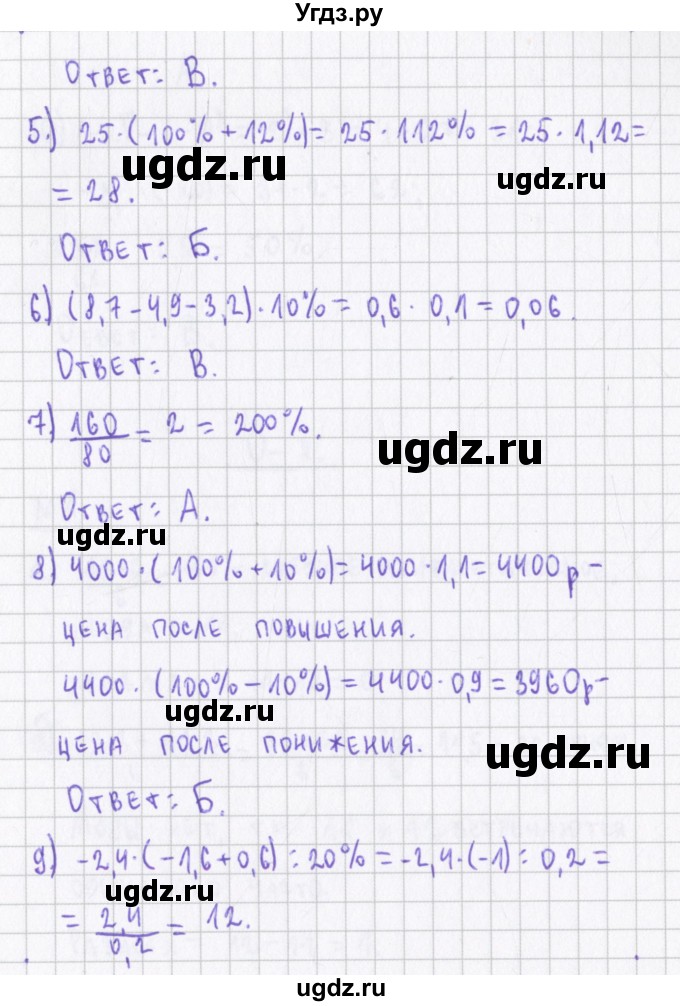 Угдз.ру
Ответ: В.
5.) 25·(100%+12%)= 25·112% = 25·1,12=
ugdz.ru
ugdz.ru
= 28.
Ответ: Б.
6) (8,7-4,9-3,2)·10%= 0,6·0,1=0,06.
Ответ: В.
7) 160/80 = 2 = 200%.
ugdz.ru
Ответ: А.
ugdz.ru
8) 4000·(100%+10%)= 4000·1,1= 4400р-
цена после повышения.
4400·(100%-10%)= 4400·0,9=3960р-
ugdz.ru
цена после понижения.
ugdz.ru
Ответ: Б.
9) -2,4·(-1,6+0,6):20%=-2,4·(-1):0,2=
= 2,4/0,2 = 12.
ugdz.ru